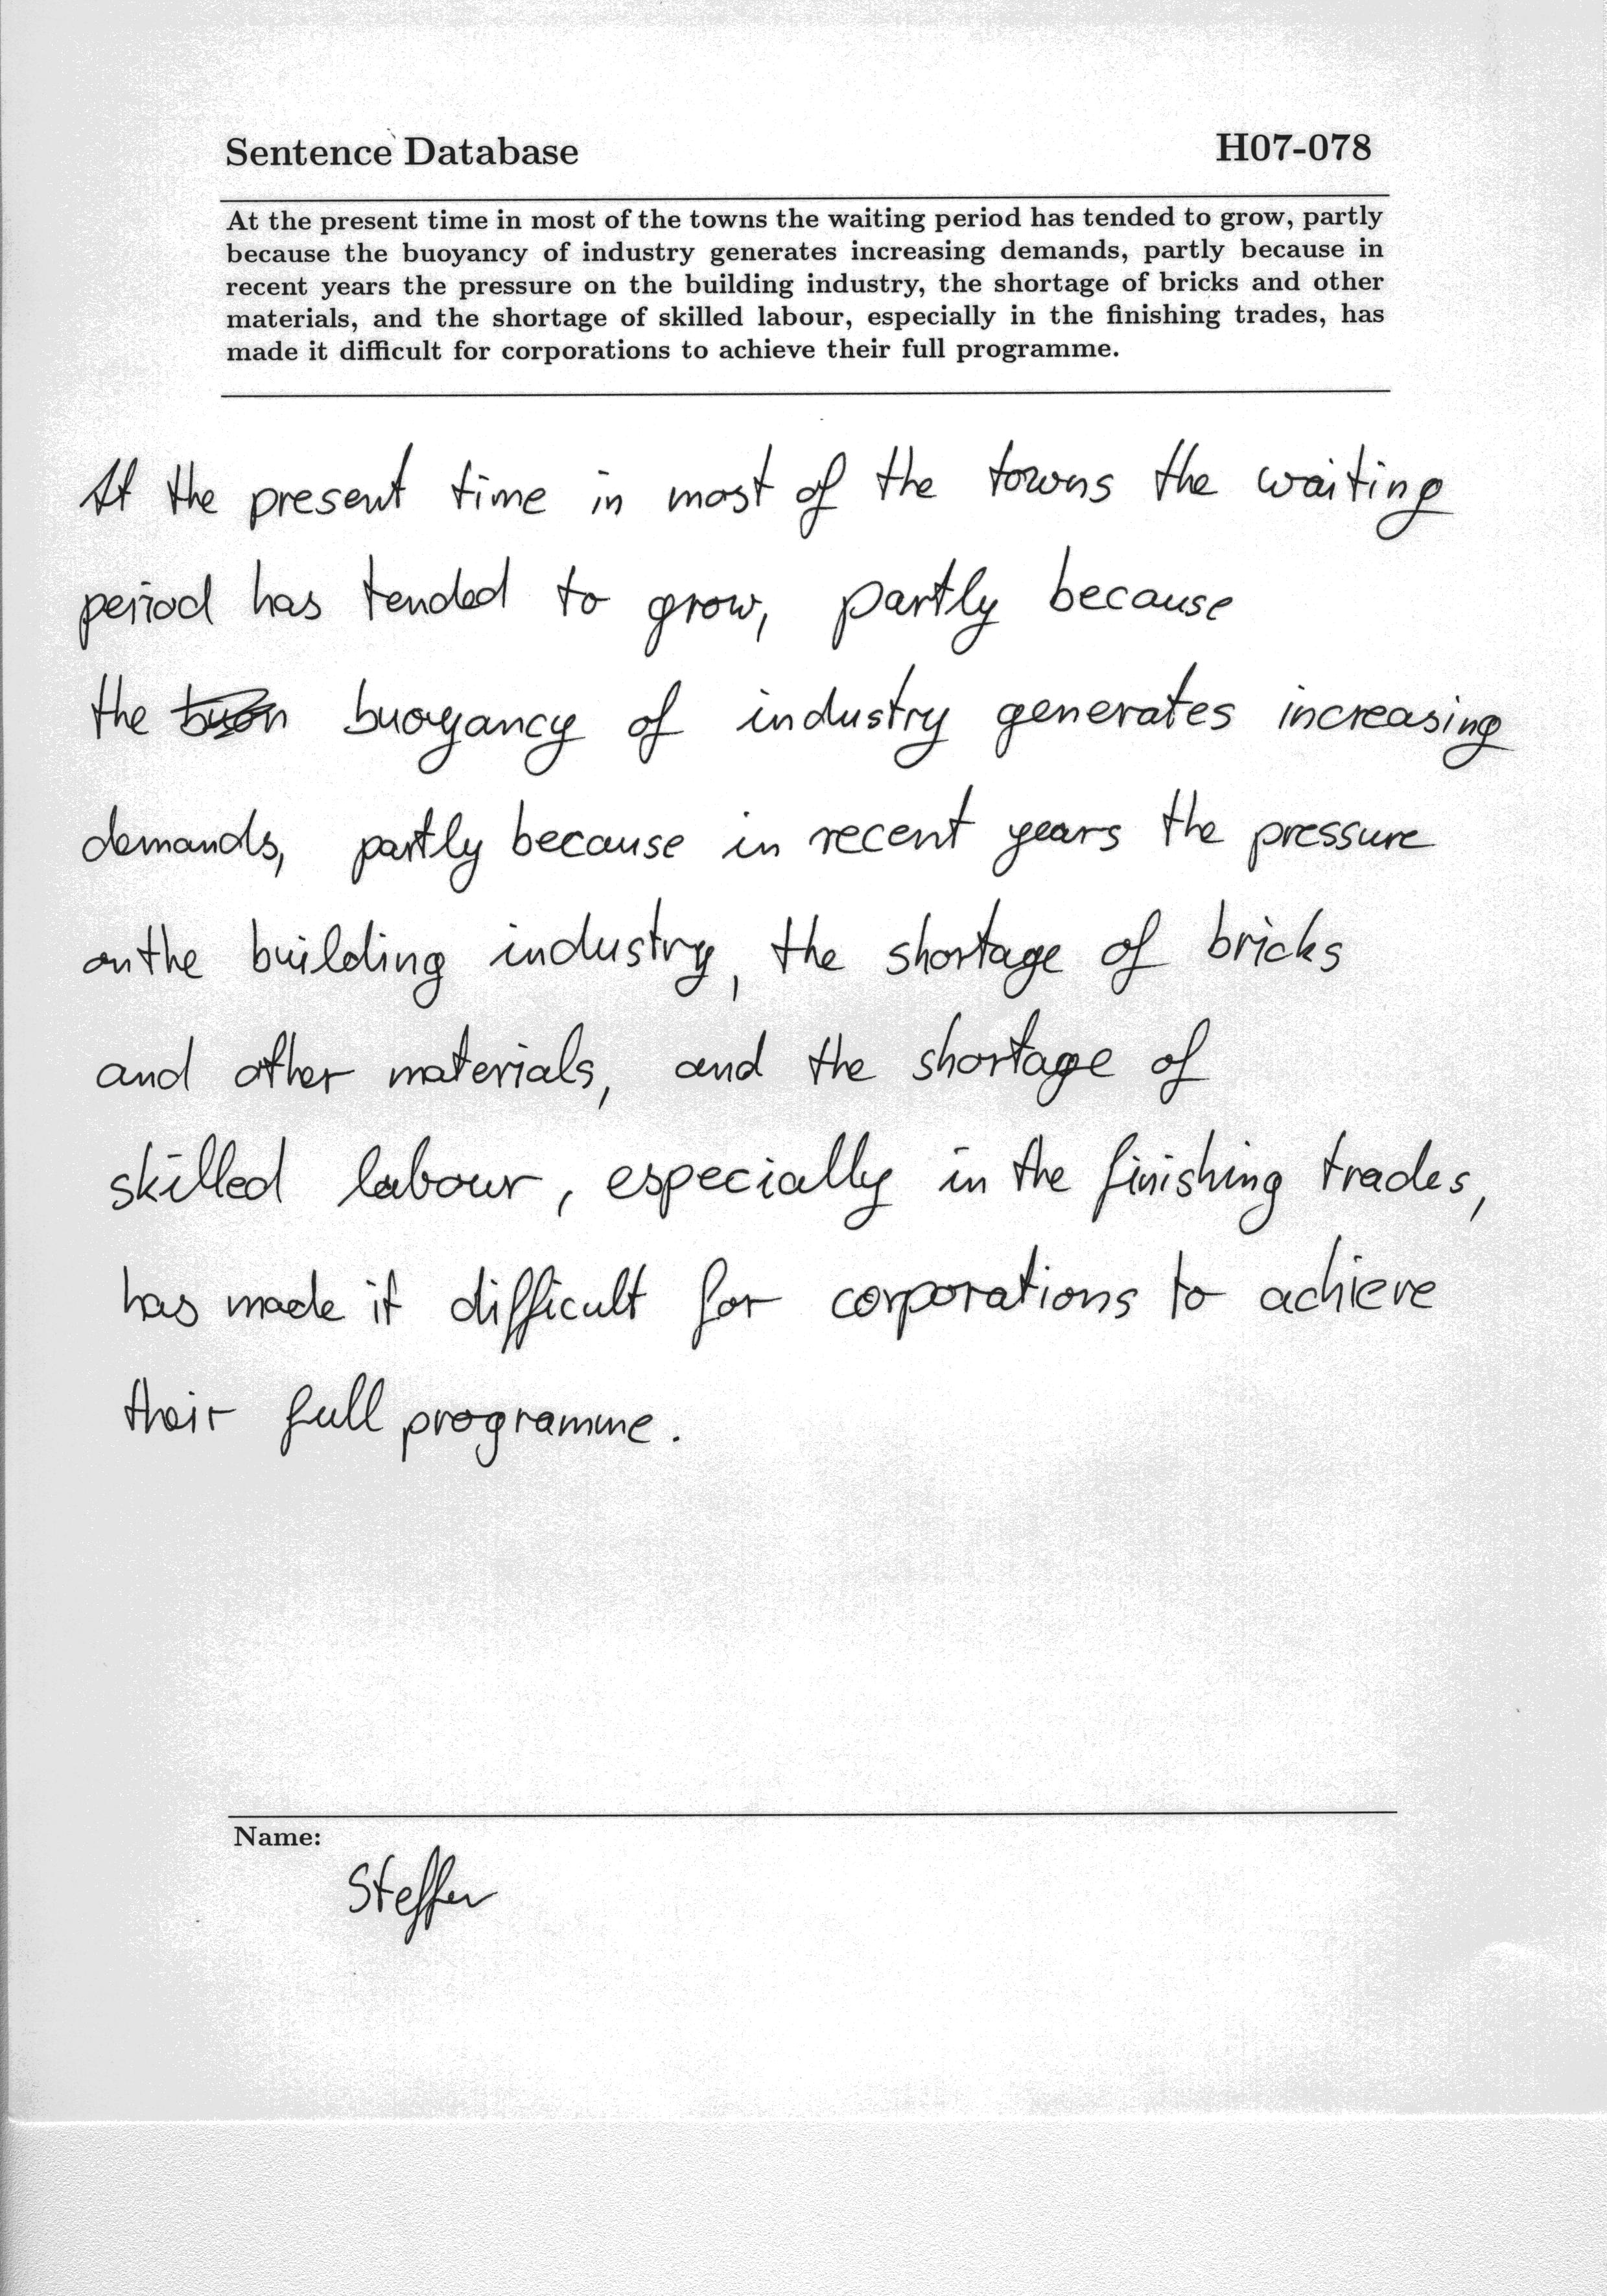 Sentence Database
H07-078
At the present time in most of the towns the waiting period has tended to grow, partly
because the buoyancy of industry generates increasing demands, partly because in
recent years the pressure on the building industry, the shortage of bricks and other
materials, and the shortage of skilled labour, especially in the finishing trades, has
made it difficult for corporations to achieve their full programme.
At the present time in most of the towns the waiting
period has tended to grow, partly because
the buoyancy of industry generates increasing
demands, partly because in recent years the pressure
on the building industry, the shortage of bricks
and other materials, and the shortage of
skilled labour, especially in the finishing trades,
has made it difficult for corporations to achieve
their full programme.
Name:
Steffen